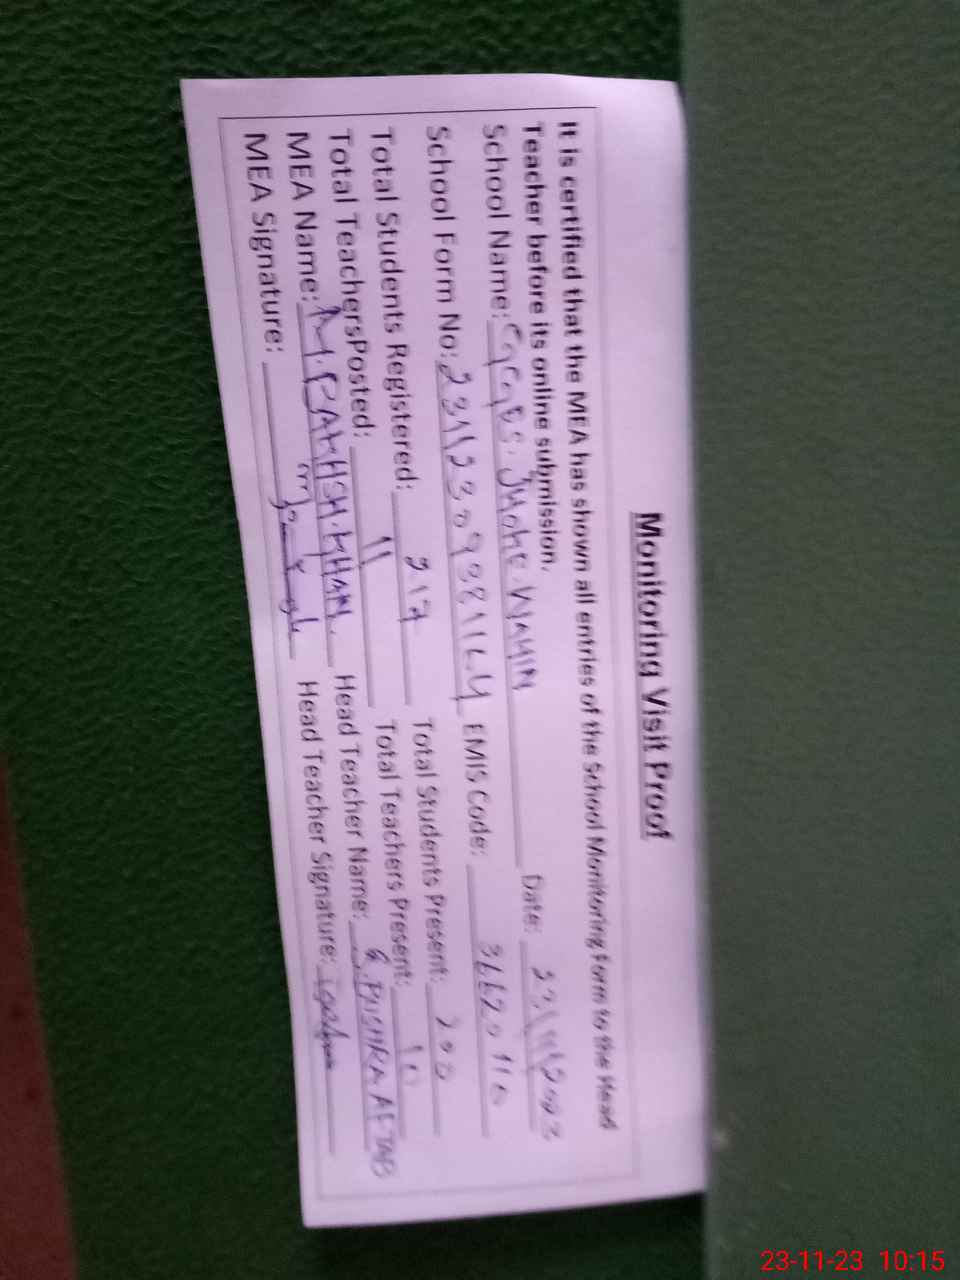 Monitoring Visit Proof
It is certified that the MEA has shown all entries of the School Monitoring Form to the Head
Teacher before its online submission.
School Name: JHOKE WAHIN Date: 23/11/2023
School Form No: EMIS Code: 36620110
Total Students Registered: 217 Total Students Present: 200
Total TeachersPosted: 11 Total Teachers Present: 10
MEA Name: M. BAKHSH KHAN. Head Teacher Name: BUSHRA AFTAB
MEA Signature: Head Teacher Signature:
23-11-23 10:15